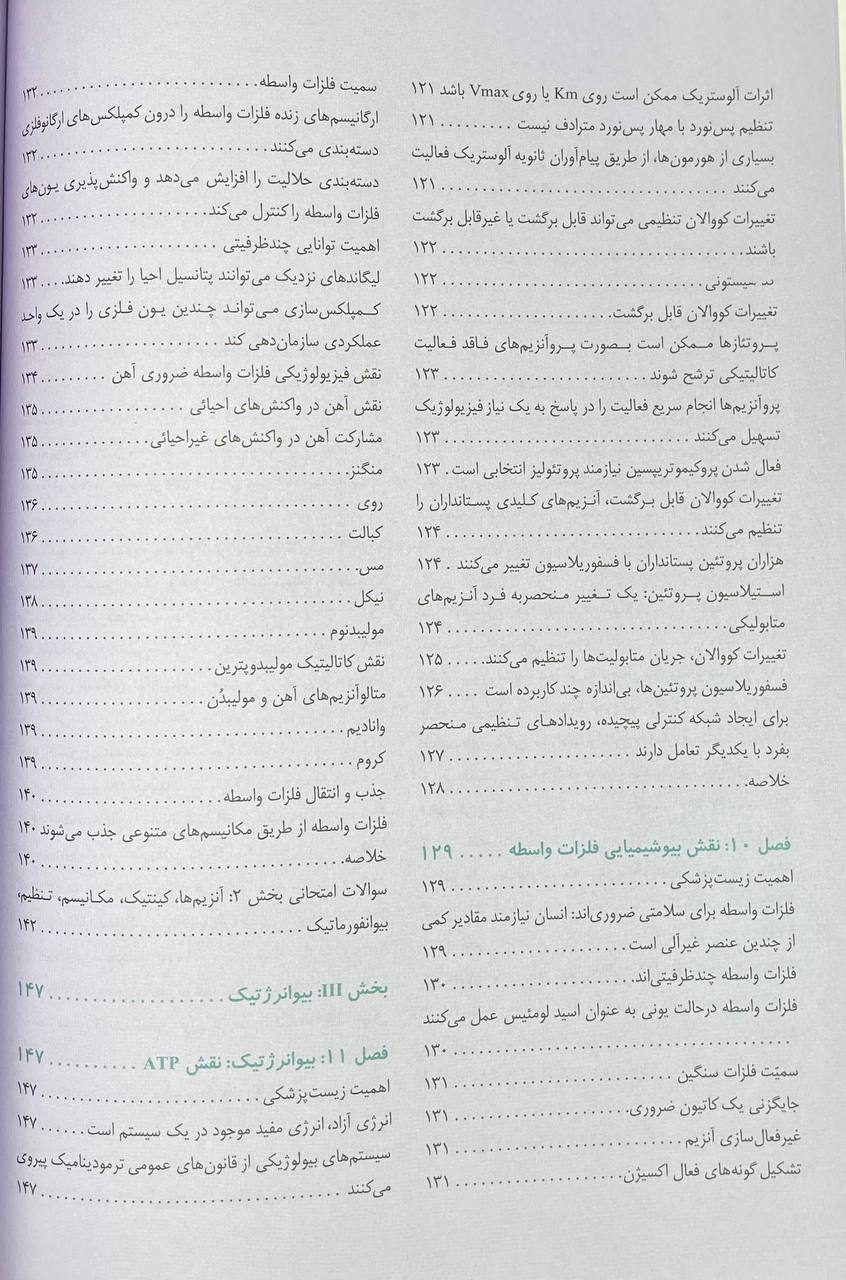 اثرات آلوستریک ممکن است روی Km یا روی Vmax باشد ۱۲۱
تنظیم پس‌نورد با مهار پس‌نورد مترادف نیست . . . . . . . . . ۱۲۱
بسیاری از هورمون‌ها، از طریق پیام‌آوران ثانویه آلوستریک فعالیت
می‌کنند . . . . . . . . . . . . . . . . . . . . . . . . . . . ۱۲۱
تغییرات کووالان تنظیمی می‌تواند قابل برگشت یا غیرقابل برگشت
باشند . . . . . . . . . . . . . . . . . . . . . . . . . . . ۱۲۲
سیستونی . . . . . . . . . . . . . . . . . . . . . . . . ۱۲۲
تغییرات کووالان قابل برگشت . . . . . . . . . . . . . . . . ۱۲۲
پروتئازها ممکن است بصورت پروآنزیم‌های فاقد فعالیت
کاتالیتیکی ترشح شوند . . . . . . . . . . . . . . . . . . ۱۲۳
پروآنزیم‌ها انجام سریع فعالیت را در پاسخ به یک نیاز فیزیولوژیک
تسهیل می‌کنند . . . . . . . . . . . . . . . . . . . . . . ۱۲۳
فعال شدن پروکیموتریپسین نیازمند پروتئولیز انتخابی است . ۱۲۳
تغییرات کووالان قابل برگشت، آنزیم‌های کلیدی پستانداران را
تنظیم می‌کنند . . . . . . . . . . . . . . . . . . . . . . ۱۲۴
هزاران پروتئین پستانداران با فسفوریلاسیون تغییر می‌کنند . ۱۲۴
استیلاسیون پروتئین: یک تغییر منحصربه فرد آنزیم‌های
متابولیکی . . . . . . . . . . . . . . . . . . . . . . . . ۱۲۴
تغییرات کووالان، جریان متابولیت‌ها را تنظیم می‌کنند . . . . . ۱۲۵
فسفوریلاسیون پروتئین‌ها، بی‌اندازه چند کاربرده است . . . . ۱۲۶
برای ایجاد شبکه کنترلی پیچیده، رویدادهای تنظیمی منحصر
بفرد با یکدیگر تعامل دارند . . . . . . . . . . . . . . . . . ۱۲۷
خلاصه . . . . . . . . . . . . . . . . . . . . . . . . . . ۱۲۸
فصل ۱۰: نقش بیوشیمیایی فلزات واسطه . . . . . ۱۲۹
اهمیت زیست‌پزشکی . . . . . . . . . . . . . . . . . . . ۱۲۹
فلزات واسطه برای سلامتی ضروری‌اند: انسان نیازمند مقادیر کمی
از چندین عنصر غیرآلی است . . . . . . . . . . . . . . . . ۱۲۹
فلزات واسطه چندظرفیتی‌اند . . . . . . . . . . . . . . . . ۱۳۰
فلزات واسطه درحالت یونی به عنوان اسید لومئیس عمل می‌کنند
. . . . . . . . . . . . . . . . . . . . . . . . . . . . . . ۱۳۰
سمیّت فلزات سنگین . . . . . . . . . . . . . . . . . . . ۱۳۱
جایگزنی یک کاتیون ضروری . . . . . . . . . . . . . . . . ۱۳۱
غیرفعال‌سازی آنزیم . . . . . . . . . . . . . . . . . . . . ۱۳۱
تشکیل گونه‌های فعال اکسیژن . . . . . . . . . . . . . . . ۱۳۱
سمیت فلزات واسطه . . . . . . . . . . . . . . . . . . . . ۱۳۲
ارگانیسم‌های زنده فلزات واسطه را درون کمپلکس‌های ارگانوفلزی
دسته‌بندی می‌کنند . . . . . . . . . . . . . . . . . . . . ۱۳۲
دسته‌بندی حلالیت را افزایش می‌دهد و واکنش‌پذیری یون‌های
فلزات واسطه را کنترل می‌کند . . . . . . . . . . . . . . . ۱۳۲
اهمیت توانایی چندظرفیتی . . . . . . . . . . . . . . . . . ۱۳۳
لیگاندهای نزدیک می‌توانند پتانسیل احیا را تغییر دهند . . . . ۱۳۳
کمپلکس‌سازی می‌تواند چندین یون فلزی را در یک واحد
عملکردی سازمان‌دهی کند . . . . . . . . . . . . . . . . . ۱۳۳
نقش فیزیولوژیکی فلزات واسطه ضروری آهن . . . . . . . . . ۱۳۴
نقش آهن در واکنش‌های احیائی . . . . . . . . . . . . . . ۱۳۵
مشارکت آهن در واکنش‌های غیراحیائی . . . . . . . . . . . ۱۳۵
منگنز . . . . . . . . . . . . . . . . . . . . . . . . . . . ۱۳۵
روی . . . . . . . . . . . . . . . . . . . . . . . . . . . . ۱۳۶
کبالت . . . . . . . . . . . . . . . . . . . . . . . . . . . ۱۳۶
مس . . . . . . . . . . . . . . . . . . . . . . . . . . . . ۱۳۷
نیکل . . . . . . . . . . . . . . . . . . . . . . . . . . . ۱۳۸
مولیبدنوم . . . . . . . . . . . . . . . . . . . . . . . . . ۱۳۹
نقش کاتالیتیک مولیبدوپترین . . . . . . . . . . . . . . . . ۱۳۹
متالوآنزیم‌های آهن و مولیبدُن . . . . . . . . . . . . . . . ۱۳۹
وانادیم . . . . . . . . . . . . . . . . . . . . . . . . . . ۱۳۹
کروم . . . . . . . . . . . . . . . . . . . . . . . . . . . ۱۳۹
جذب و انتقال فلزات واسطه . . . . . . . . . . . . . . . . . ۱۴۰
فلزات واسطه از طریق مکانیسم‌های متنوعی جذب می‌شوند ۱۴۰
خلاصه . . . . . . . . . . . . . . . . . . . . . . . . . . ۱۴۰
سوالات امتحانی بخش ۲: آنزیم‌ها، کینتیک، مکانیسم، تنظیم،
بیوانفورماتیک . . . . . . . . . . . . . . . . . . . . . . . ۱۴۲
بخش III: بیوانرژتیک . . . . . . . . . . . . . . . . . ۱۴۷
فصل ۱۱: بیوانرژتیک: نقش ATP . . . . . . . . . . ۱۴۷
اهمیت زیست‌پزشکی . . . . . . . . . . . . . . . . . . . . ۱۴۷
انرژی آزاد، انرژی مفید موجود در یک سیستم است . . . . . . ۱۴۷
سیستم‌های بیولوژیکی از قانون‌های عمومی ترمودینامیک پیروی
می‌کنند . . . . . . . . . . . . . . . . . . . . . . . . . . ۱۴۷